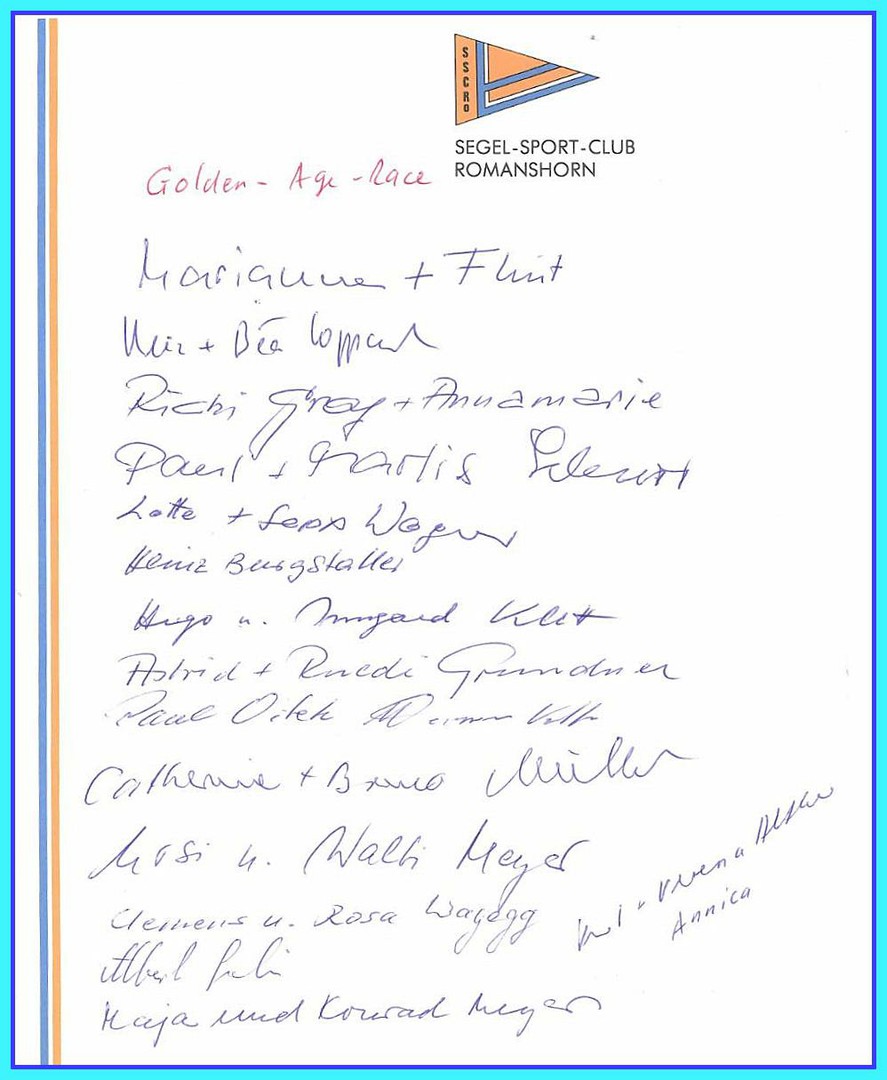 SSCRO
SEGEL-SPORT-CLUB
ROMANSHORN
Golden-Age-Race
Marianne + Flint
+ Béa
Richi Gray + Annamarie
Paul + Marlis
Lotte + Sepp Wagner
Heinz Burgstaller
Hugo u. Irmgard Klett
Astrid + Ruedi Grundner
Paul
Catherine + Bruno Müller
Ursi u. Walti Meyer
Clemens u. Rosa Wagegg
+ Verena
Annica
Albert
Maja und Konrad Meyer